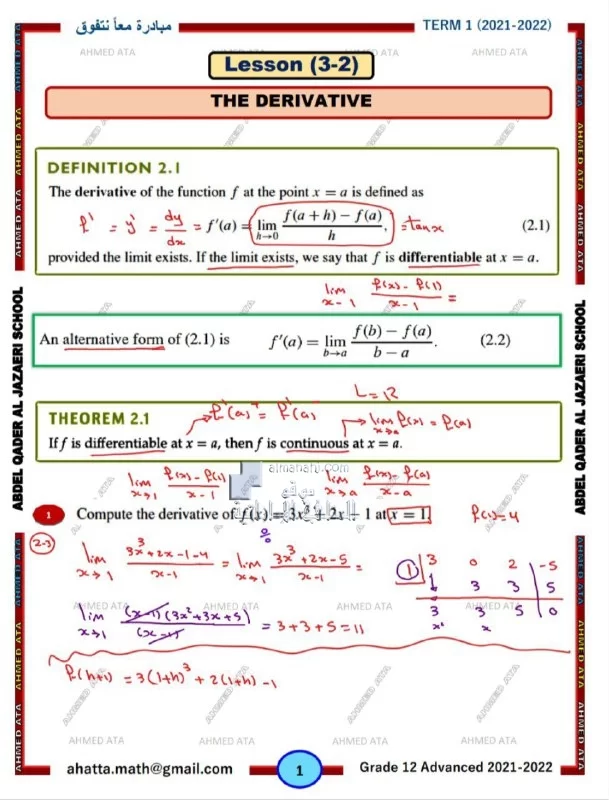 مبادرة معاً نتفوق
TERM 1 (2021-2022)
AHMED ATA AHMED ATA AHMED ATA AHMED ATA
Lesson (3-2)
THE DERIVATIVE
DEFINITION 2.1
The derivative of the function f at the point x = a is defined as
f' = y' = dy/dx = f'(a) = lim h→0 (f(a + h) − f(a))/h, = tan x (2.1)
provided the limit exists. If the limit exists, we say that f is differentiable at x = a.
lim x→1 (f(x) - f(1))/(x-1) =
An alternative form of (2.1) is f'(a) = lim b→a (f(b) − f(a))/(b − a). (2.2)
L = R
f'(a)⁺ = f'(a)⁻ lim x→a f(x) = f(a)
THEOREM 2.1
If f is differentiable at x = a, then f is continuous at x = a.
lim x→1 (f(x) - f(1))/(x-1) lim x→a (f(x) - f(a))/(x-a)
almanahj.com
موقع
المناهج الإماراتية
1 Compute the derivative of f(x) = 3x³ + 2x − 1 at x = 1. f(1) = 4
0/0
2-3
lim x→1 (3x³+2x-1-4)/(x-1) = lim x→1 (3x³+2x-5)/(x-1) =
1 3 0 2 -5
↓ 3 3 5
3 3 5 0
x² x
lim x→1 (x-1)(3x²+3x+5)/(x-1) = 3+3+5 = 11
f(h+1) = 3(1+h)³ + 2(1+h) - 1
AHMED ATA AHMED ATA AHMED ATA AHMED ATA
ABDEL QADER AL JAZAERI SCHOOL
ABDEL QADER AL JAZAERI SCHOOL
ahatta.math@gmail.com
1
Grade 12 Advanced 2021-2022